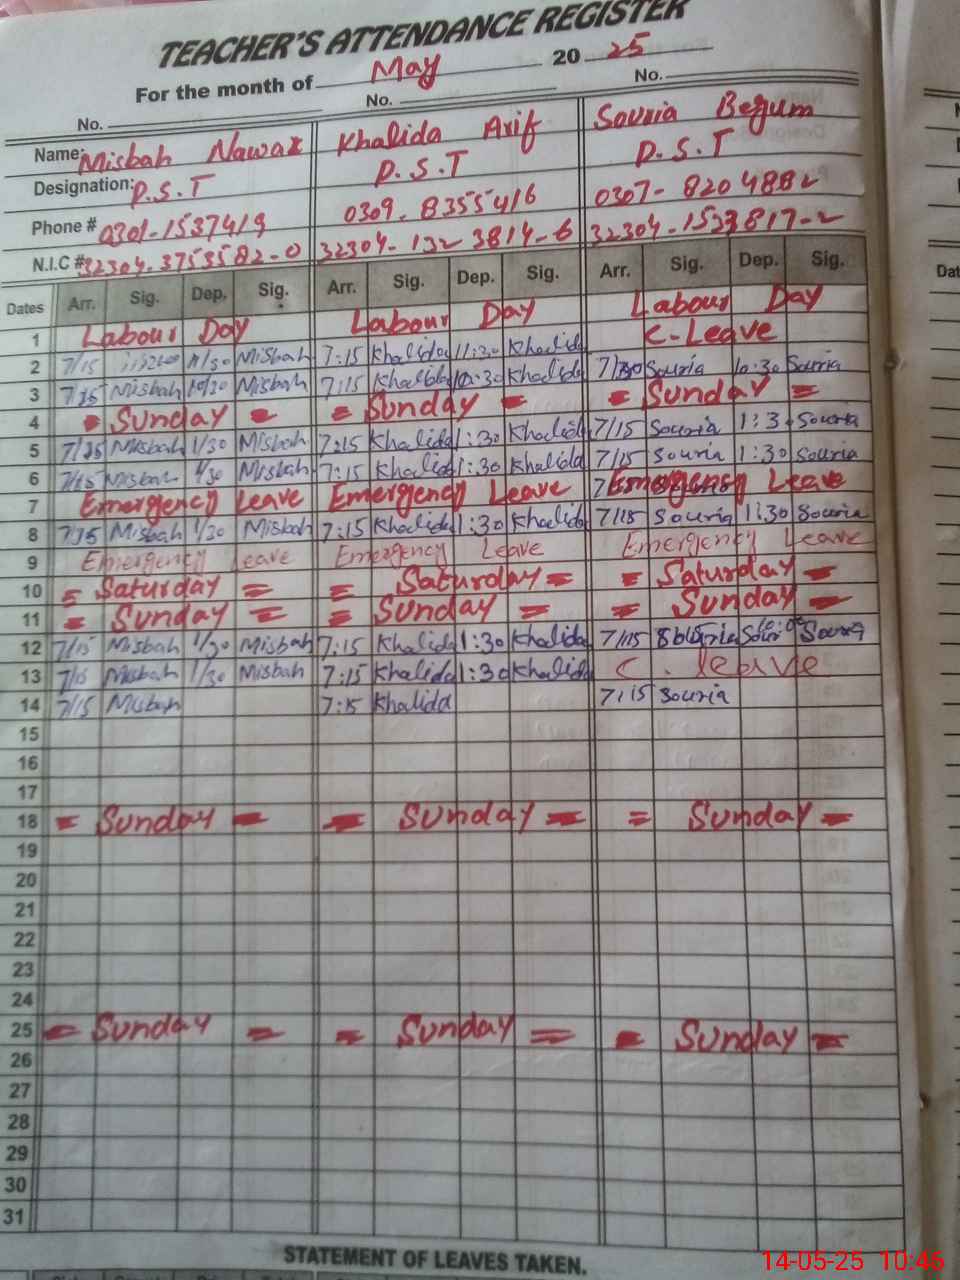 TEACHER'S ATTENDANCE REGISTER
For the month of May 20 25
No. No. No.
Name: Misbah Nawaz Khalida Arif Souria Begum
Designation: P.S.T P.S.T P.S.T
Phone # 0301-1537419 0309-8355416 0307-8204882
N.I.C # 32304-3753582-0 32304-132 3814-6 32304-1523817-2
Dates Arr. Sig. Dep. Sig. Arr. Sig. Dep. Sig. Arr. Sig. Dep. Sig.
1 Labour Day Labour Day Labour Day
2 7/15 11/30 Misbah 7:15 Khalida 11:30 Khalida C-Leave
3 7/15 Misbah 10/30 Misbah 7:15 Khalida 10:30 Khalida 7/30 Souria 10:30 Souria
4 = Sunday = = Sunday = = Sunday =
5 7/15 Misbah 1/30 Misbah 7:15 Khalida 1:30 Khalida 7/15 Souria 1:30 Souria
6 7/15 Misbah 1/30 Misbah 7:15 Khalida 1:30 Khalida 7/15 Souria 1:30 Souria
7 Emergency Leave Emergency Leave Emergency Leave
8 7/15 Misbah 1/30 Misbah 7:15 Khalida 1:30 Khalida 7/15 Souria 1:30 Souria
9 Emergency Leave Emergency Leave Emergency Leave
10 = Saturday = = Saturday = = Saturday =
11 = Sunday = = Sunday = = Sunday =
12 7/15 Misbah 1/30 Misbah 7:15 Khalida 1:30 Khalida 7/15 Souria Souria
13 7/15 Misbah 1/30 Misbah 7:15 Khalida 1:30 Khalida C. leave
14 7/15 Misbah 7:15 Khalida 7:15 Souria
15
16
17
18 = Sunday = = Sunday = = Sunday =
19
20
21
22
23
24
25 = Sunday = = Sunday = = Sunday =
26
27
28
29
30
31
STATEMENT OF LEAVES TAKEN.
14-05-25 10:46